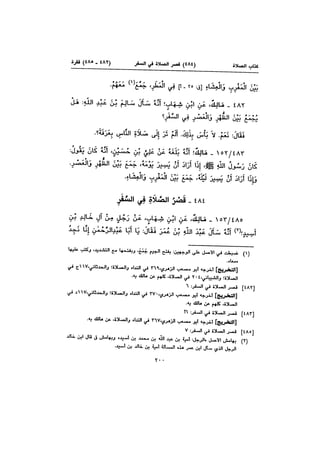 كتاب الصلاة (٤٨٤) قصر الصلاة في السفر (٤٨٢ - ٤٨٥) فقرة
بَيْنَ الْمَغْرِبِ وَالْعِشَاءِ [ق: ٢٥ - أ] فِي الْمَطَرِ، جَمَعَ(١) مَعَهُمْ.
٤٨٢ - مَالِكٌ، عَنِ ابْنِ شِهَابٍ؛ أَنَّهُ سَأَلَ سَالِمَ بْنَ عَبْدِ اللهِ: هَلْ
يُجْمَعُ بَيْنَ الظُّهْرِ وَالْعَصْرِ فِي السَّفَرِ؟
فَقَالَ: نَعَمْ. لَا بَأْسَ بِذٰلِكَ. أَلَمْ تَرَ إِلَى صَلَاةِ النَّاسِ بِعَرَفَةَ؟.
١٥٢/٤٨٣ - مَالِكٌ؛ أَنَّهُ بَلَغَهُ عَنْ عَلِيِّ بْنِ حُسَيْنٍ، أَنَّهُ كَانَ يَقُولُ:
كَانَ رَسُولُ اللهِ ﷺ، إِذَا أَرَادَ أَنْ يَسِيرَ يَوْمَهُ، جَمَعَ بَيْنَ الظُّهْرِ وَالْعَصْرِ.
وَإِذَا أَرَادَ أَنْ يَسِيرَ لَيْلَهُ، جَمَعَ بَيْنَ الْمَغْرِبِ وَالْعِشَاءِ.
٤٨٤ - قَصْرُ الصَّلَاةِ فِي السَّفَرِ
١٥٣/٤٨٥ - مَالِكٌ، عَنِ ابْنِ شِهَابٍ، عَنْ رَجُلٍ مِنْ آلِ خَالِدِ بْنِ
أَسِيدٍ(٢)؛ أَنَّهُ سَأَلَ عَبْدَ اللهِ بْنَ عُمَرَ فَقَالَ: يَا أَبَا عَبْدِالرَّحْمٰنِ إِنَّا نَجِدُ
(١) ضبطت في الأصل على الوجهين: بفتح الجيم وبضمها مع التشديد، وكتب عليها
معاً.
[التخريج] أخرجه أبو مصعب الزهري، ٣٦٩ في النداء والصلاة؛ والحدثاني، ١١٧ج في
الصلاة؛ والشيباني، ٢٠٤ في الصلاة، كلهم عن مالك به.
[٤٨٢] قصر الصلاة في السفر: ٦
[التخريج] أخرجه أبو مصعب الزهري، ٣٧٠ في النداء والصلاة؛ والحدثاني، ١١٧د في
الصلاة، كلهم عن مالك به.
[٤٨٣] قصر الصلاة في السفر: ٦أ
[التخريج] أخرجه أبو مصعب الزهري، ٣٦٧ في النداء والصلاة، عن مالك به.
[٤٨٥] قصر الصلاة في السفر: ٧
(٢) بهامش الأصل «الرجل: أمية بن عبد الله بن
الرجل الذي سأل ابن عمر هذه المسألة أمية بن
٢٠٠